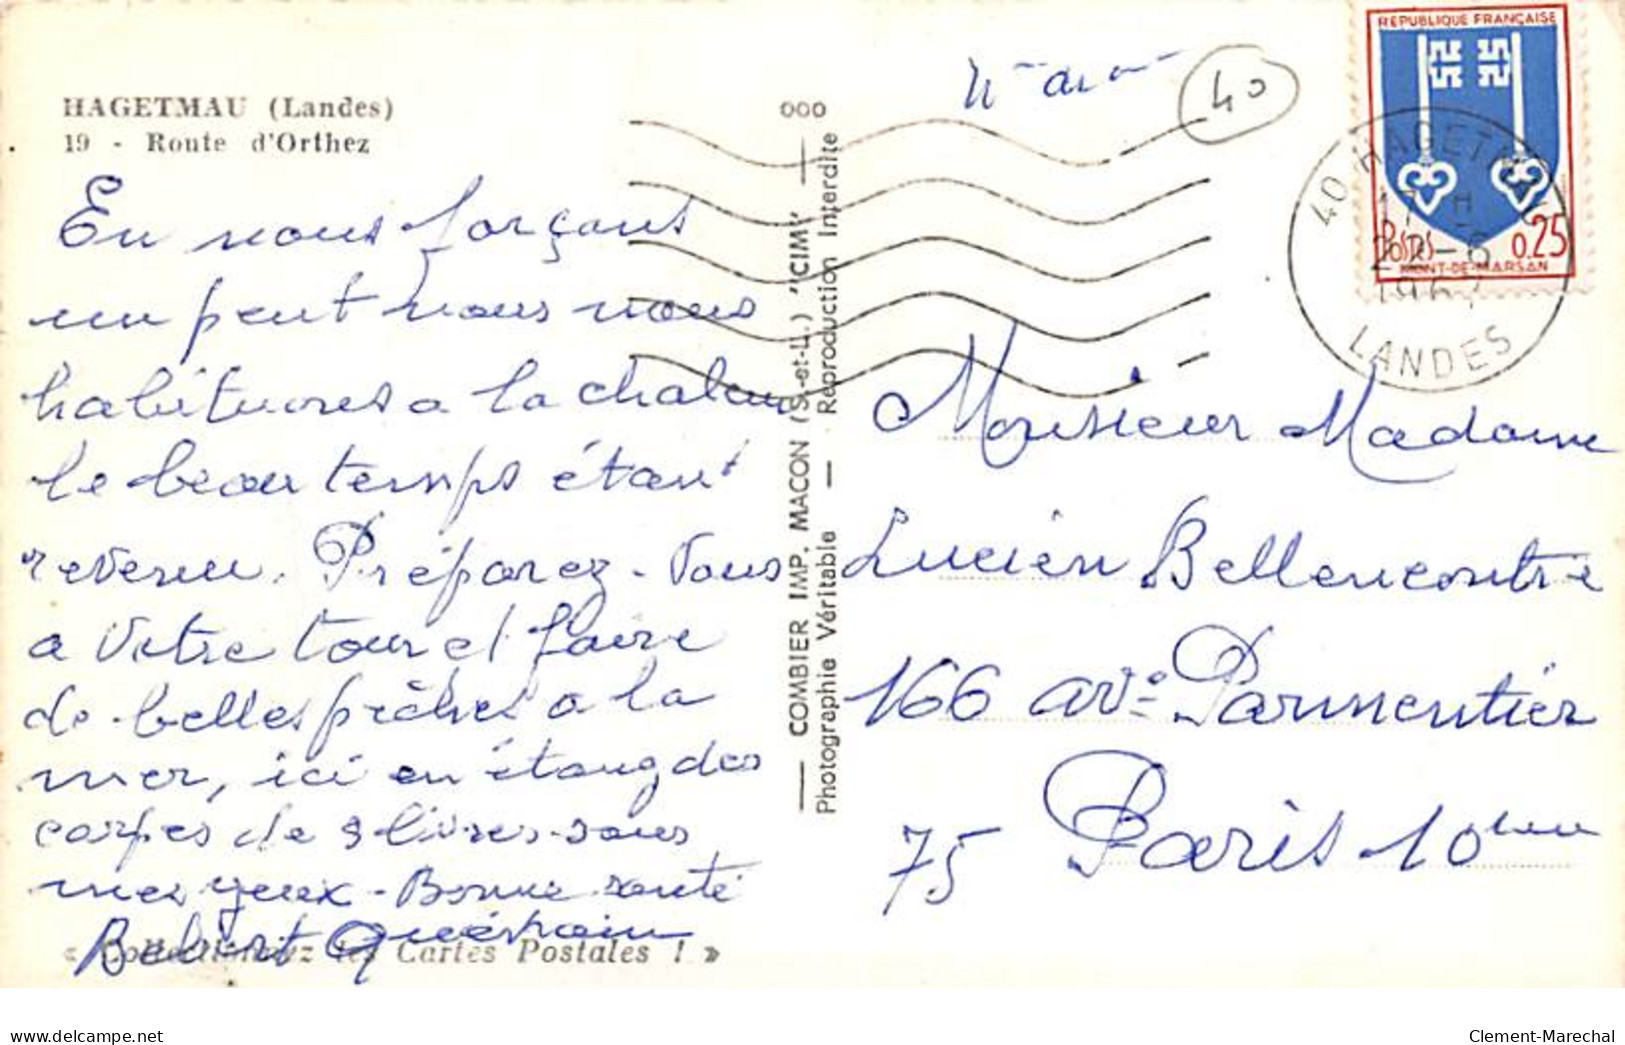 HAGETMAU (Landes)
19 - Route d'Orthez
En nous forçant
un peut nous nous
habituons a la chaleur
le beau temps étant
revenu. Préparez-Vous
a Votre tour et faire
de belles pêches a la
mer, ici en étang des
carpes de 9 livres sous
mes yeux - Bonne santé
Bebert
« Collectionnez les Cartes Postales ! »
COMBIER IMP. MACON (S.-et-L.) "CIM"
Photographie Véritable — Reproduction Interdite
000
40
REPUBLIQUE FRANÇAISE
POSTES 0,25
MONT-DE-MARSAN
40 HAGETMAU
17 H
22-6
1967
LANDES
Monsieur Madame
Lucien Bellencontre
166 ave Parmentier
75 Paris 10eme
delcampe.net
Clement-Marechal